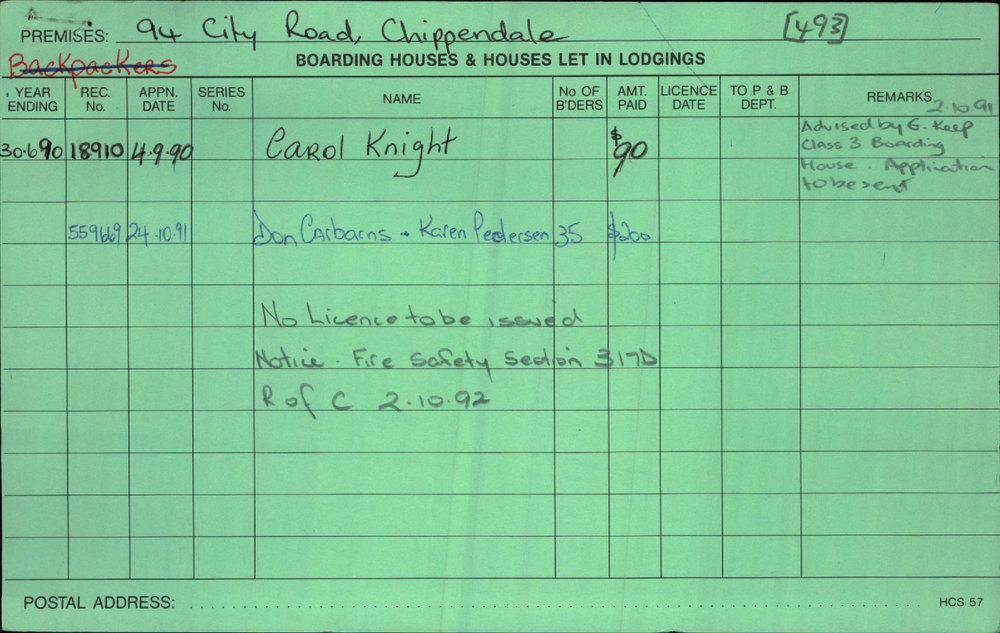 PREMISES: 94 City Road, Chippendale [493]
Backpackers
BOARDING HOUSES & HOUSES LET IN LODGINGS
YEAR ENDING REC. No. APPN. DATE SERIES No. NAME No OF B'DERS AMT. PAID LICENCE DATE TO P & B DEPT. REMARKS
2.10.91
30.6.90 18910 4.9.90 Carol Knight $90
Advised by G. Keep
Class 3 Boarding
House. Application
to be sent
559669 24.10.91 Don Carbarns + Karen Pedersen 35 $200
No Licence to be issued
Notice. Fire Safety Section 317D
R of C 2.10.92
POSTAL ADDRESS:
HCS 57